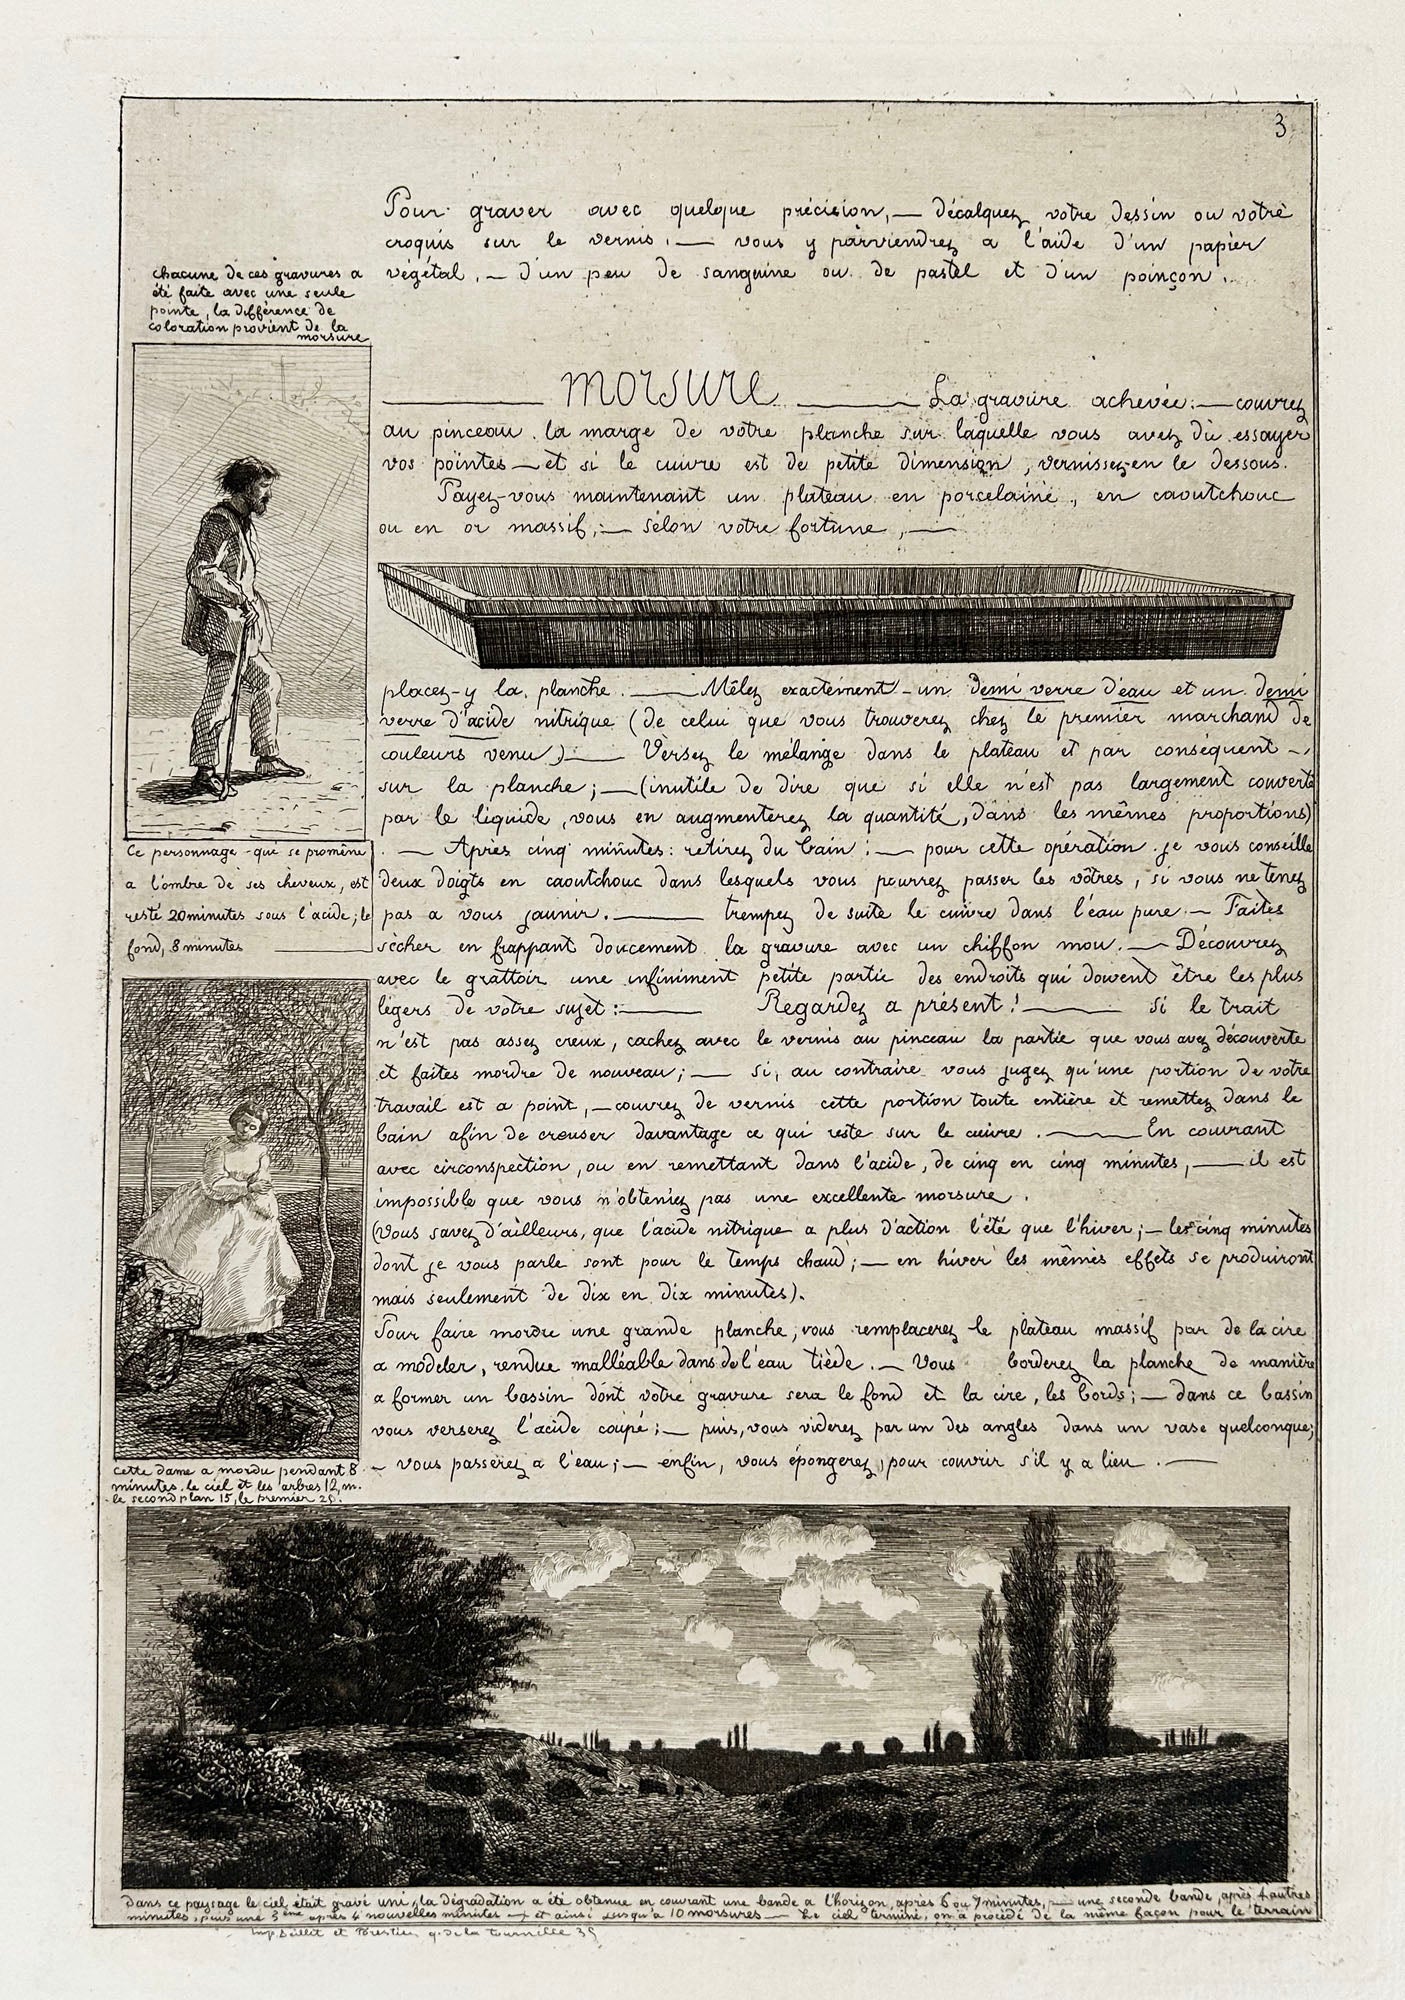 3
Pour graver avec quelque précision, — décalquez votre dessin ou votre
croquis sur le vernis. — vous y parviendrez a l'aide d'un papier
végétal. — d'un peu de sanguine ou de pastel et d'un poinçon.
chacune de ces gravures a
été faite avec une seule
pointe, la différence de
coloration provient de la
morsure
MORSURE — La gravure achevée: — couvrez
au pinceau la marge de votre planche sur laquelle vous avez dû essayer
vos pointes — et si le cuivre est de petite dimension, vernissez-en le dessous.
Payez-vous maintenant un plateau en porcelaine, en caoutchouc
ou en or massif; — sélon votre fortune, —
placez-y la planche. — Mêlez exactement — un demi verre d'eau et un demi
verre d'acide nitrique (de celui que vous trouverez chez le premier marchand de
couleurs venu) — Versez le mélange dans le plateau et par conséquent —
sur la planche; — (inutile de dire que si elle n'est pas largement couverte
par le liquide, vous en augmenterez la quantité, dans les mêmes proportions)
. — Après cinq minutes: retirez du bain: — pour cette opération je vous conseille
deux doigts en caoutchouc dans lesquels vous pourrez passer les vôtres, si vous ne tenez
pas a vous jaunir. — trempez de suite le cuivre dans l'eau pure — Faites
sècher en frappant doucement la gravure avec un chiffon mou. — Découvrez
avec le grattoir une infiniment petite partie des endroits qui doivent être les plus
légers de votre sujet: — Regardez a présent! — si le trait
n'est pas assez creux, cachez avec le vernis au pinceau la partie que vous avez découverte
et faites mordre de nouveau; — si, au contraire vous jugez qu'une portion de votre
travail est a point, — couvrez de vernis cette portion toute entière et remettez dans le
bain afin de creuser davantage ce qui reste sur le cuivre. — En couvrant
avec circonspection, ou en remettant dans l'acide, de cinq en cinq minutes, — il est
impossible que vous n'obteniez pas une excellente morsure.
(Vous savez d'ailleurs, que l'acide nitrique a plus d'action l'été que l'hiver; — les cinq minutes
dont je vous parle sont pour le temps chaud; — en hiver les mêmes effets se produiront
mais seulement de dix en dix minutes).
Pour faire mordre une grande planche, vous remplacerez le plateau massif par de la cire
a modeler, rendue malléable dans de l'eau tiède. — Vous borderez la planche de manière
a former un bassin dont votre gravure sera le fond et la cire, les bords; — dans ce bassin
vous verserez l'acide coupé; — puis, vous viderez par un des angles dans un vase quelconque;
— vous passerez a l'eau; — enfin, vous épongerez, pour couvrir s'il y a lieu. —
Ce personnage qui se promène
a l'ombre de ses cheveux, est
resté 20 minutes sous l'acide; le
fond, 8 minutes
cette dame a mordu pendant 8
minutes, le ciel et les arbres 12, m.
le second plan 15, le premier 20.
Dans ce paysage le ciel était gravé uni, la dégradation a été obtenue en couvrant une bande a l'horizon, après 6 ou 7 minutes, — une seconde bande, après 4 autres
minutes, puis une 3ème après 4 nouvelles minutes — et ainsi jusqu'a 10 morsures — Le ciel terminé, on a procédé de la même façon pour le terrain
Imp. Beillet et Forestier q. de la tournelle 35